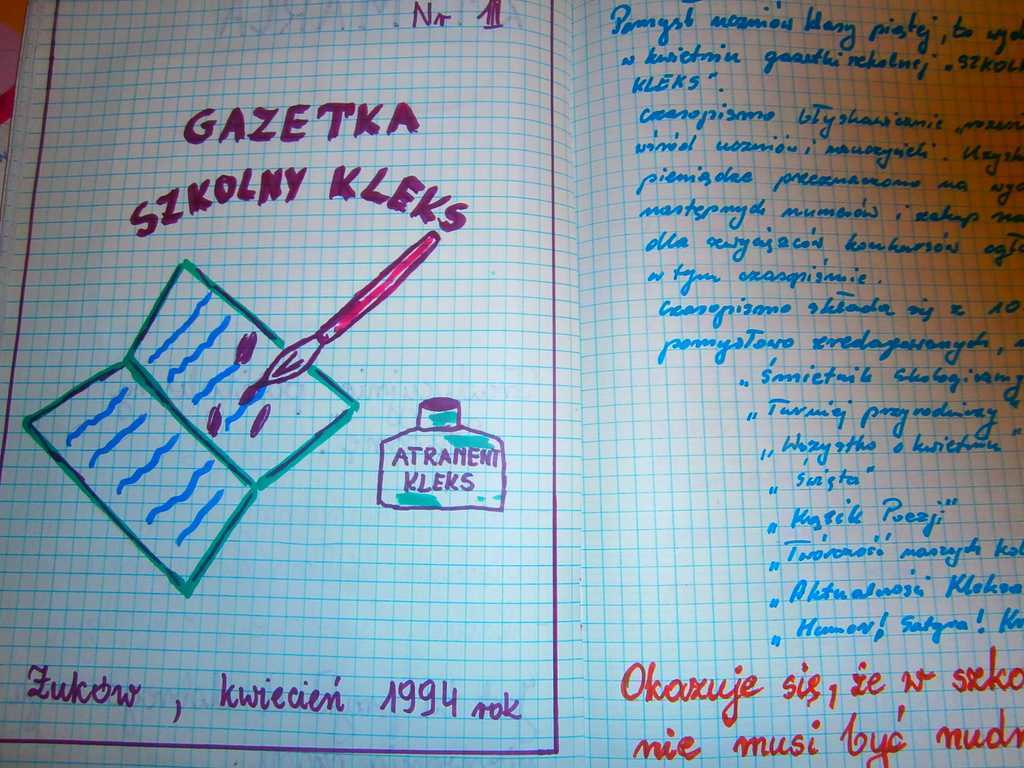 Nr 1
GAZETKA
SZKOLNY KLEKS
ATRAMENT
KLEKS
Żuków, kwiecień 1994 rok
Pomysł uczniów klasy piątej, to
w kwietniu gazetki szkolnej „SZKOL
KLEKS".
Czasopismo błyskawicznie
wśród uczniów i nauczycieli.
pieniądze przeznaczono na
następnych numerów i zakup
dla zwycięzców konkursów
w tym czasopiśmie.
Czasopismo składa się z 10
pomysłowo zredagowanych,
„Śmietnik
„Turniej przyrodniczy"
„Wszystko o kwietniu"
„Święta"
„Kącik Poezji"
„Twórczość naszych
„Aktualności
„Humor! Satyra!
Okazuje się, że w szko
nie musi być nudn